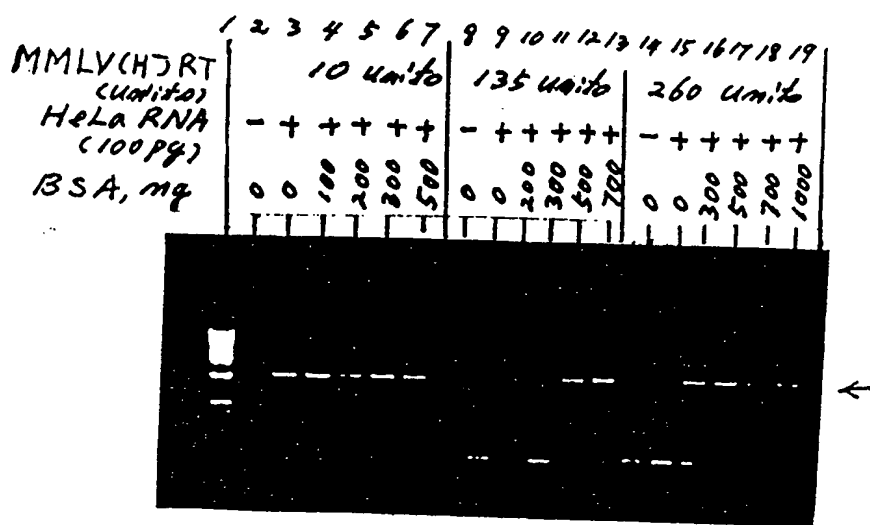 1 2 3 4 5 6 7 8 9 10 11 12 13 14 15 16 17 18 19
MMLV(H-)RT 10 units 135 units 260 units
(units)
HeLa RNA - + + + + + - + + + + + - + + + + +
(100pg)
BSA, ng 0 0 100 200 300 500 0 0 200 300 500 700 0 0 300 500 700 1000
←